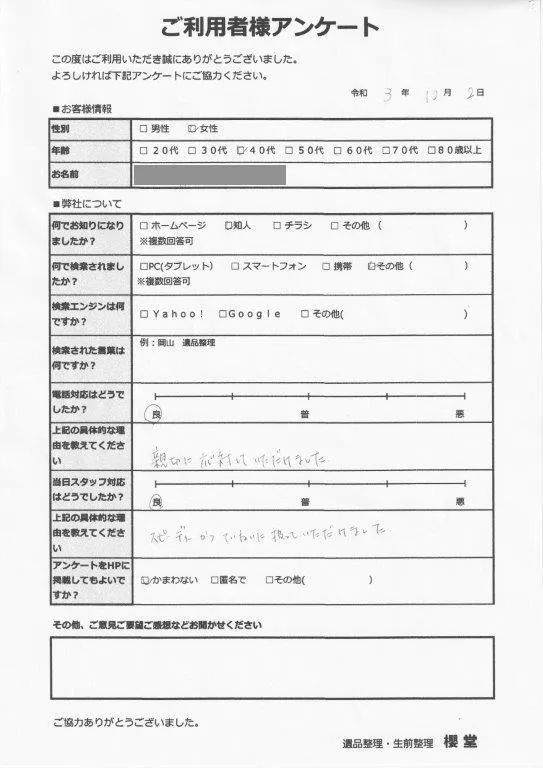 ご利用者様アンケート
この度はご利用いただき誠にありがとうございました。
よろしければ下記アンケートにご協力ください。
令和 3 年 12 月 2 日
■お客様情報
性別 □男性 ☑女性
年齢 □20代 □30代 ☑40代 □50代 □60代 □70代 □80歳以上
お名前
■弊社について
何でお知りになりましたか？ □ホームページ ☑知人 □チラシ □その他（ ）
※複数回答可
何で検索されましたか？ □PC(タブレット） □スマートフォン □携帯 ☑その他（ ）
※複数回答可
検索エンジンは何ですか？ □Yahoo！ □Google □その他( )
検索された言葉は何ですか？ 例：岡山 遺品整理
電話対応はどうでしたか？ 良 普 悪
上記の具体的な理由を教えてください 親切に応対していただけました
当日スタッフ対応はどうでしたか？ 良 普 悪
上記の具体的な理由を教えてください スピーディかつていねいに扱っていただけました
アンケートをHPに掲載してもよいですか？ ☑かまわない □匿名で □その他( )
その他、ご意見ご要望ご感想などお聞かせください
ご協力ありがとうございました。
遺品整理・生前整理 櫻堂